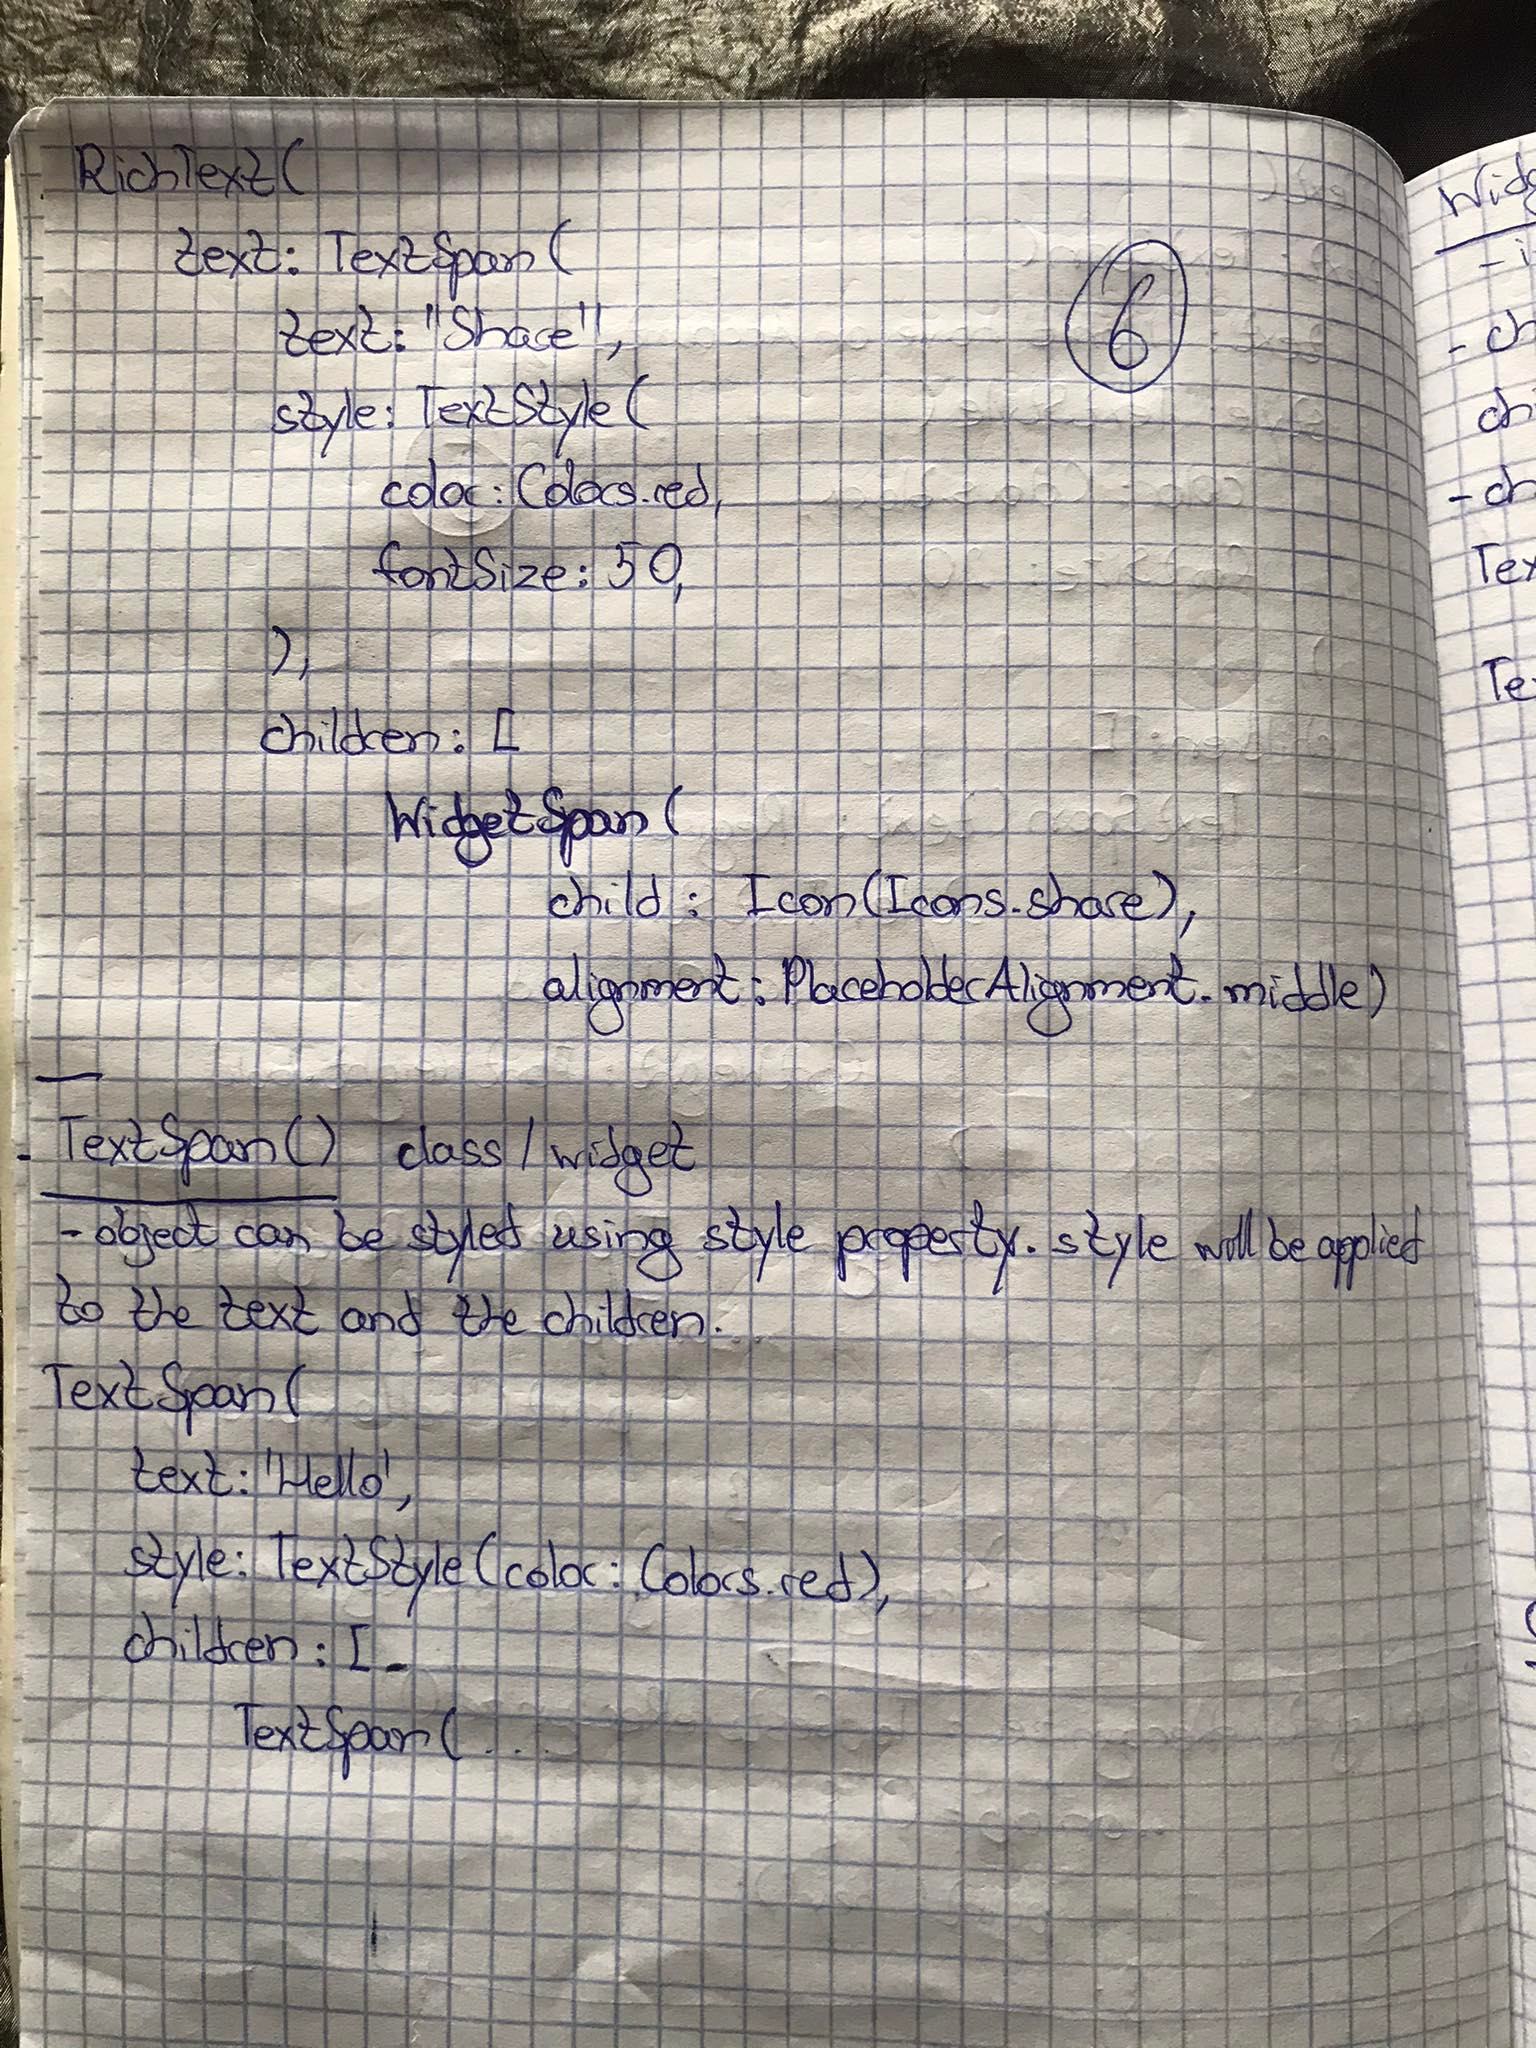 RichText(
text: TextSpan(
text: "Share",
6
style: TextStyle(
color: Colors.red,
fontSize: 50,
),
children: [
WidgetSpan(
child: Icon(Icons.share),
alignment: PlaceholderAlignment.middle)
- TextSpan() class / widget
- object can be styled using style property. style will be applied
to the text and the children.
TextSpan(
text: 'Hello',
style: TextStyle(color: Colors.red),
children: [
TextSpan( ...
- ch
- ch